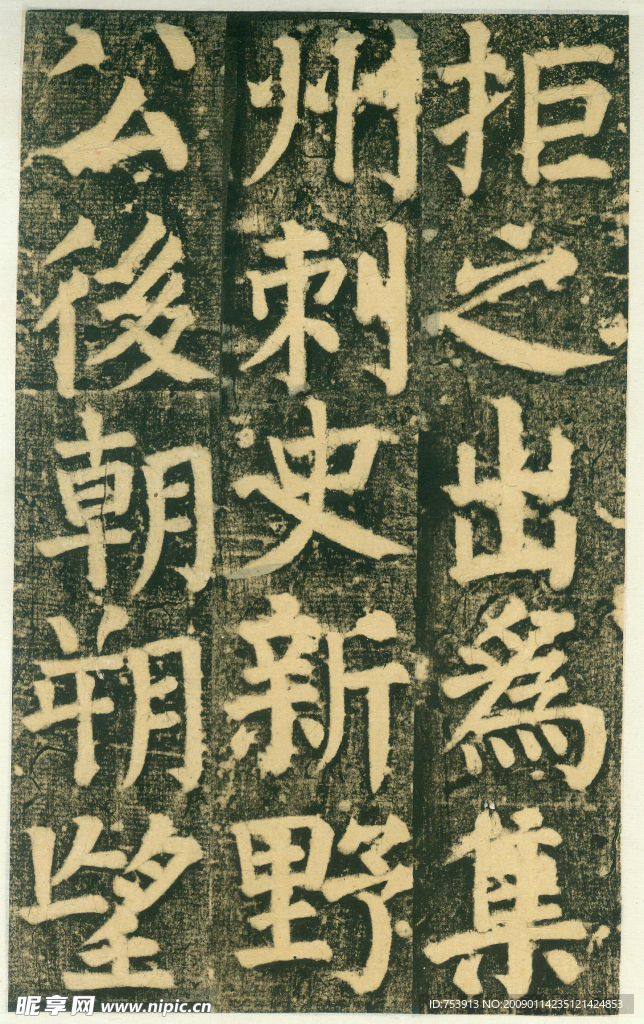 拒之出為集
州刺史新野
公後朝朔望
昵享网 www.nipic.cn
ID:753913 NO:20090114235121424853